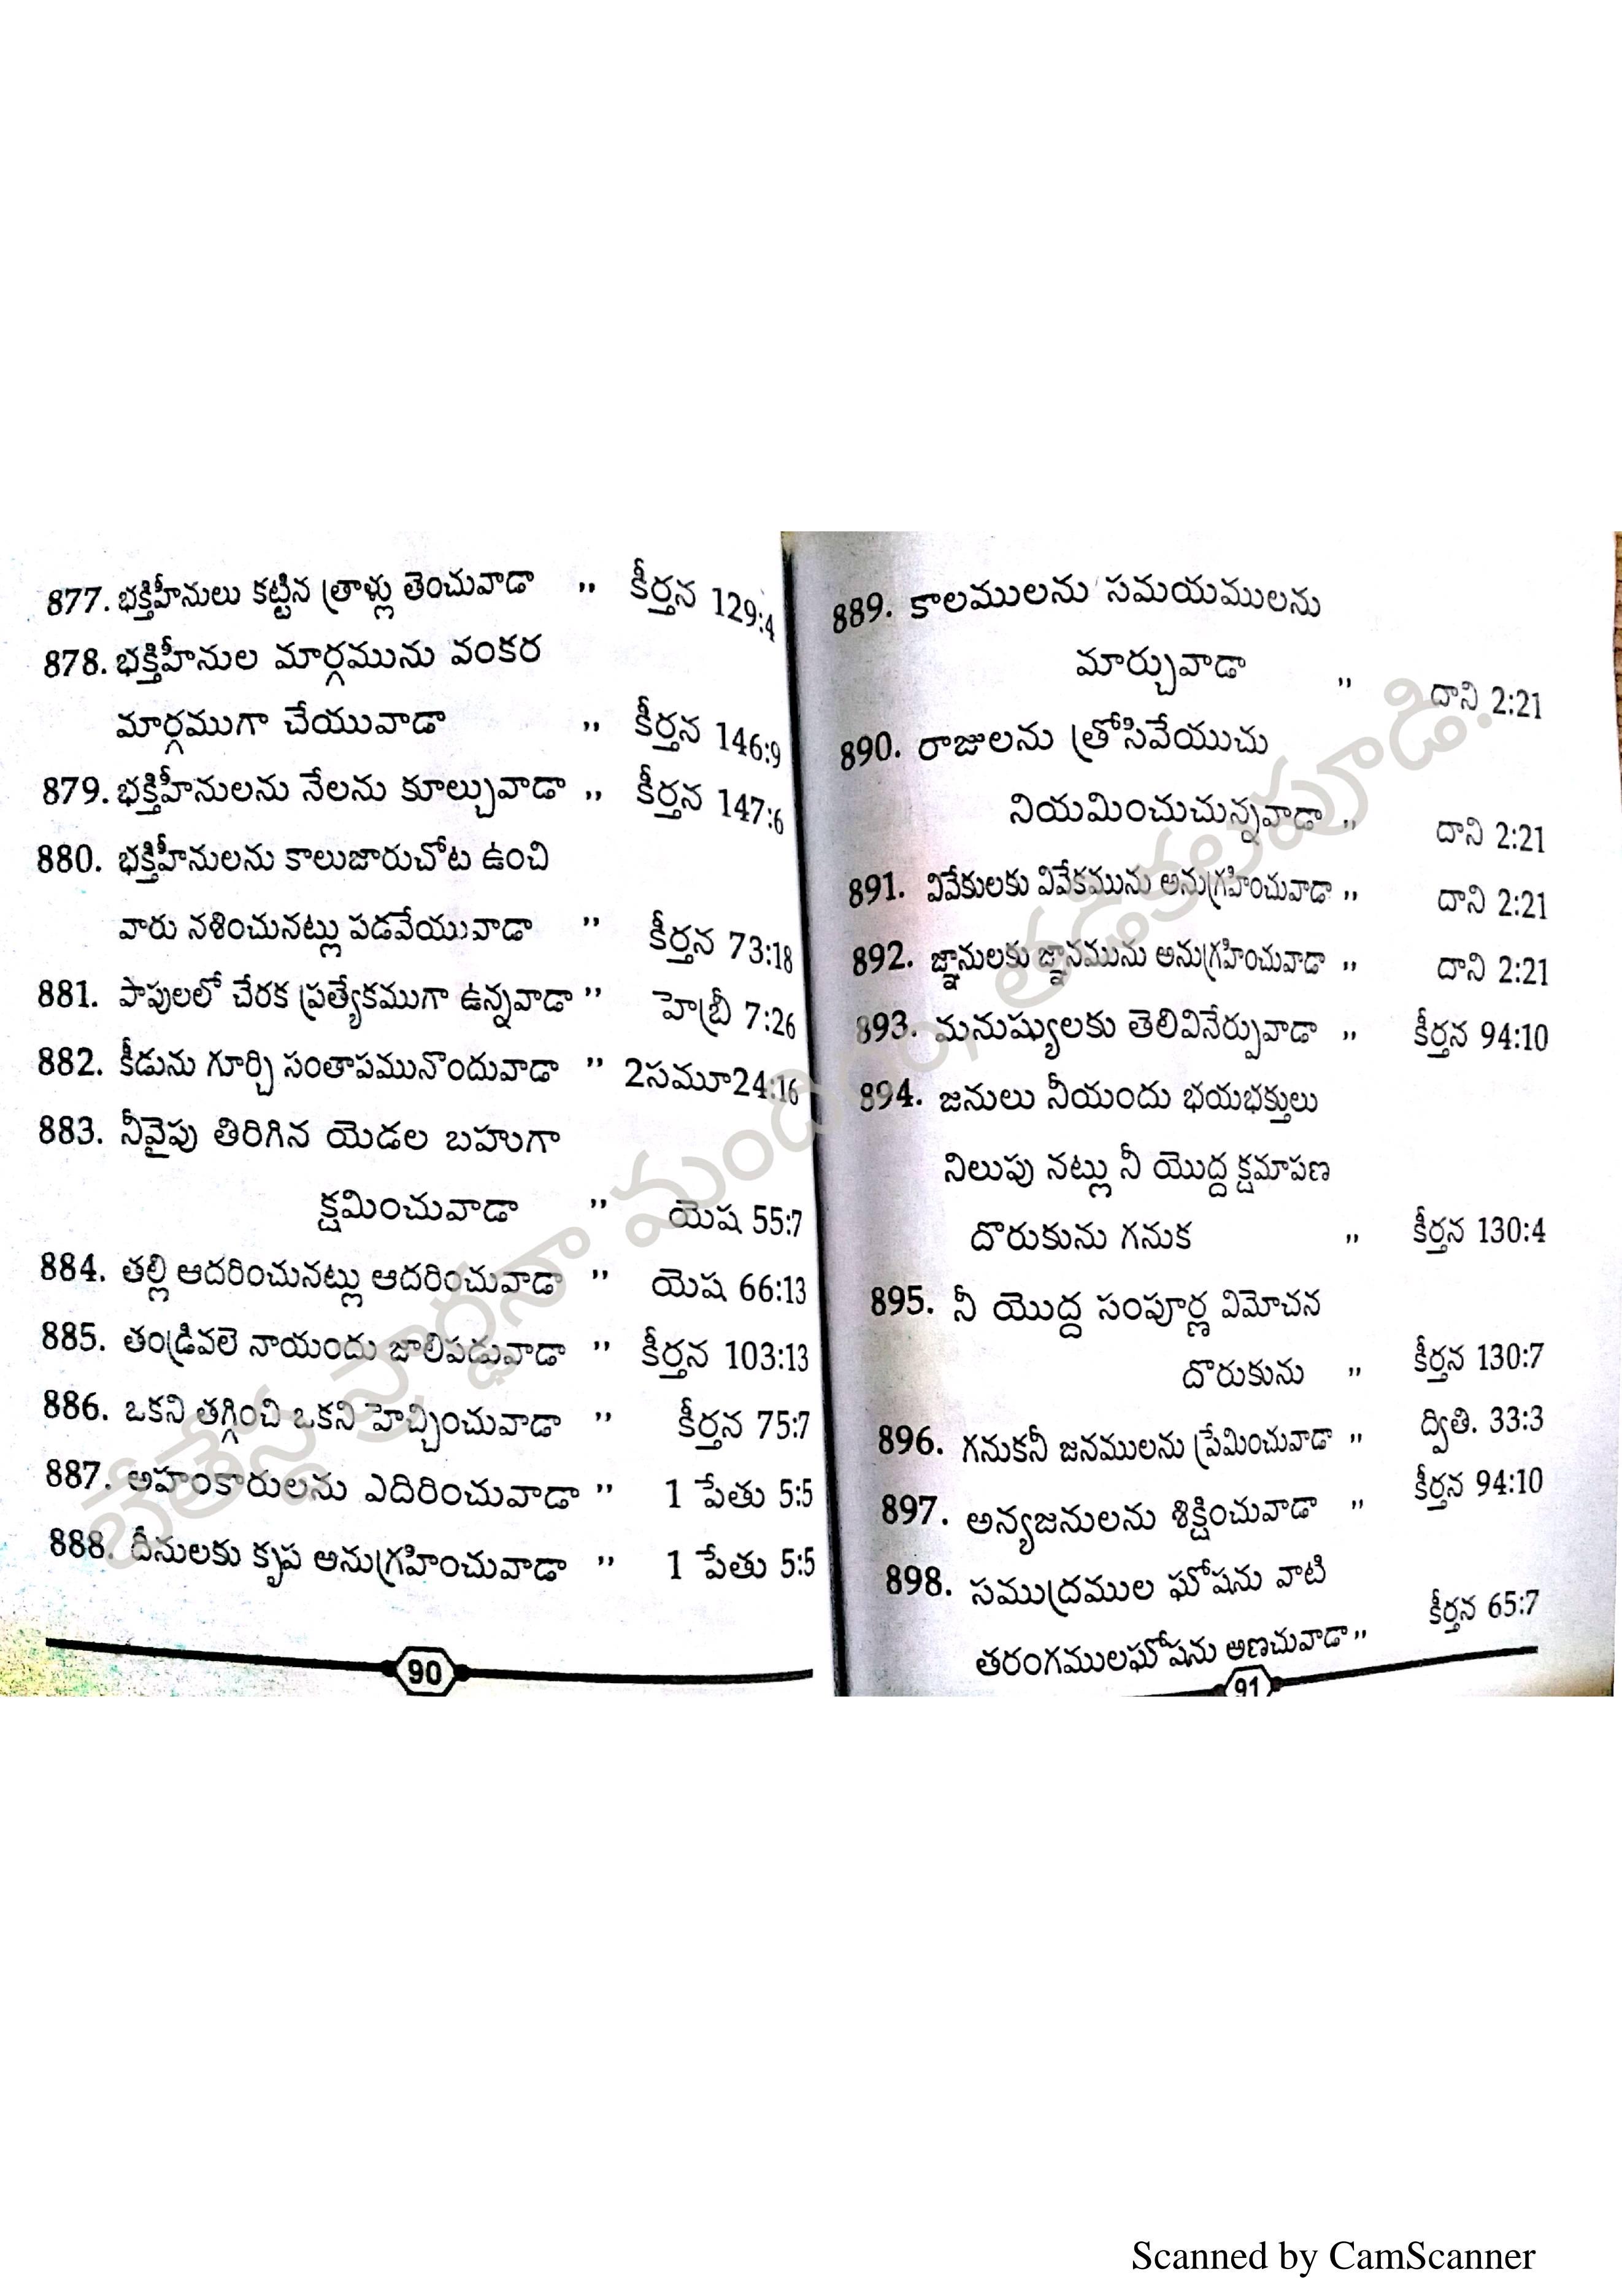 877. భక్తిహీనులు కట్టిన త్రాళ్లు తెంచువాడా ,, కీర్తన 129:4
878. భక్తిహీనుల మార్గమును వంకర
మార్గముగా చేయువాడా ,, కీర్తన 146:9
879. భక్తిహీనులను నేలను కూల్చువాడా ,, కీర్తన 147:6
880. భక్తిహీనులను కాలుజారుచోట ఉంచి
వారు నశించునట్లు పడవేయువాడా ,, కీర్తన 73:18
881. పాపులలో చేరక ప్రత్యేకముగా ఉన్నవాడా ,, హెబ్రీ 7:26
882. కీడును గూర్చి సంతాపమునొందువాడా ,, 2సమూ24:16
883. నీవైపు తిరిగిన యెడల బహుగా
క్షమించువాడా ,, యెష 55:7
884. తల్లి ఆదరించునట్లు ఆదరించువాడా ,, యెష 66:13
885. తండ్రివలె నాయందు జాలిపడువాడా ,, కీర్తన 103:13
886. ఒకని తగ్గించి ఒకని హెచ్చించువాడా ,, కీర్తన 75:7
887. అహంకారులను ఎదిరించువాడా ,, 1 పేతు 5:5
888. దీనులకు కృప అనుగ్రహించువాడా ,, 1 పేతు 5:5
90
889. కాలములను సమయములను
మార్చువాడా ,, దాని 2:21
890. రాజులను త్రోసివేయుచు
నియమించుచున్నవాడా ,, దాని 2:21
891. వివేకులకు వివేకమును అనుగ్రహించువాడా ,, దాని 2:21
892. జ్ఞానులకు జ్ఞానమును అనుగ్రహించువాడా ,, దాని 2:21
893. మనుష్యులకు తెలివినేర్పువాడా ,, కీర్తన 94:10
894. జనులు నీయందు భయభక్తులు
నిలుపు నట్లు నీ యొద్ద క్షమాపణ
దొరుకును గనుక ,, కీర్తన 130:4
895. నీ యొద్ద సంపూర్ణ విమోచన
దొరుకును ,, కీర్తన 130:7
896. గనుకనీ జనములను ప్రేమించువాడా ,, ద్వితి. 33:3
897. అన్యజనులను శిక్షించువాడా ,, కీర్తన 94:10
898. సముద్రముల ఘోషను వాటి
తరంగములఘోషను అణచువాడా ,, కీర్తన 65:7
91
బేతేస్థ ప్రార్థనా మందిరం, తాడికలపూడి.
Scanned by CamScanner